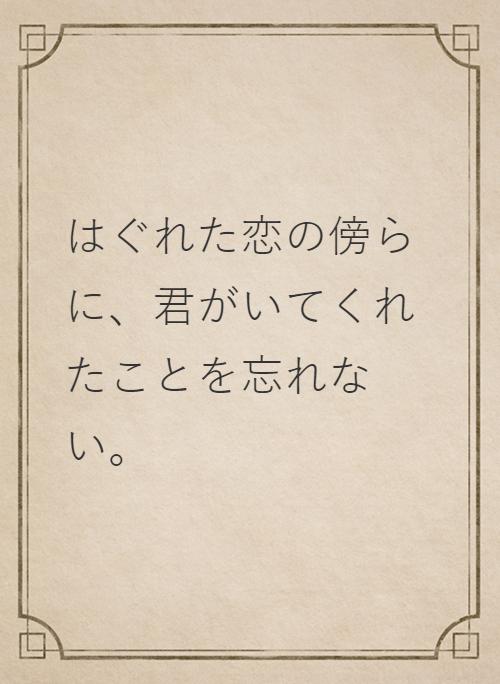 はぐれた恋の傍ら
に、君がいてくれ
たことを忘れな
い。